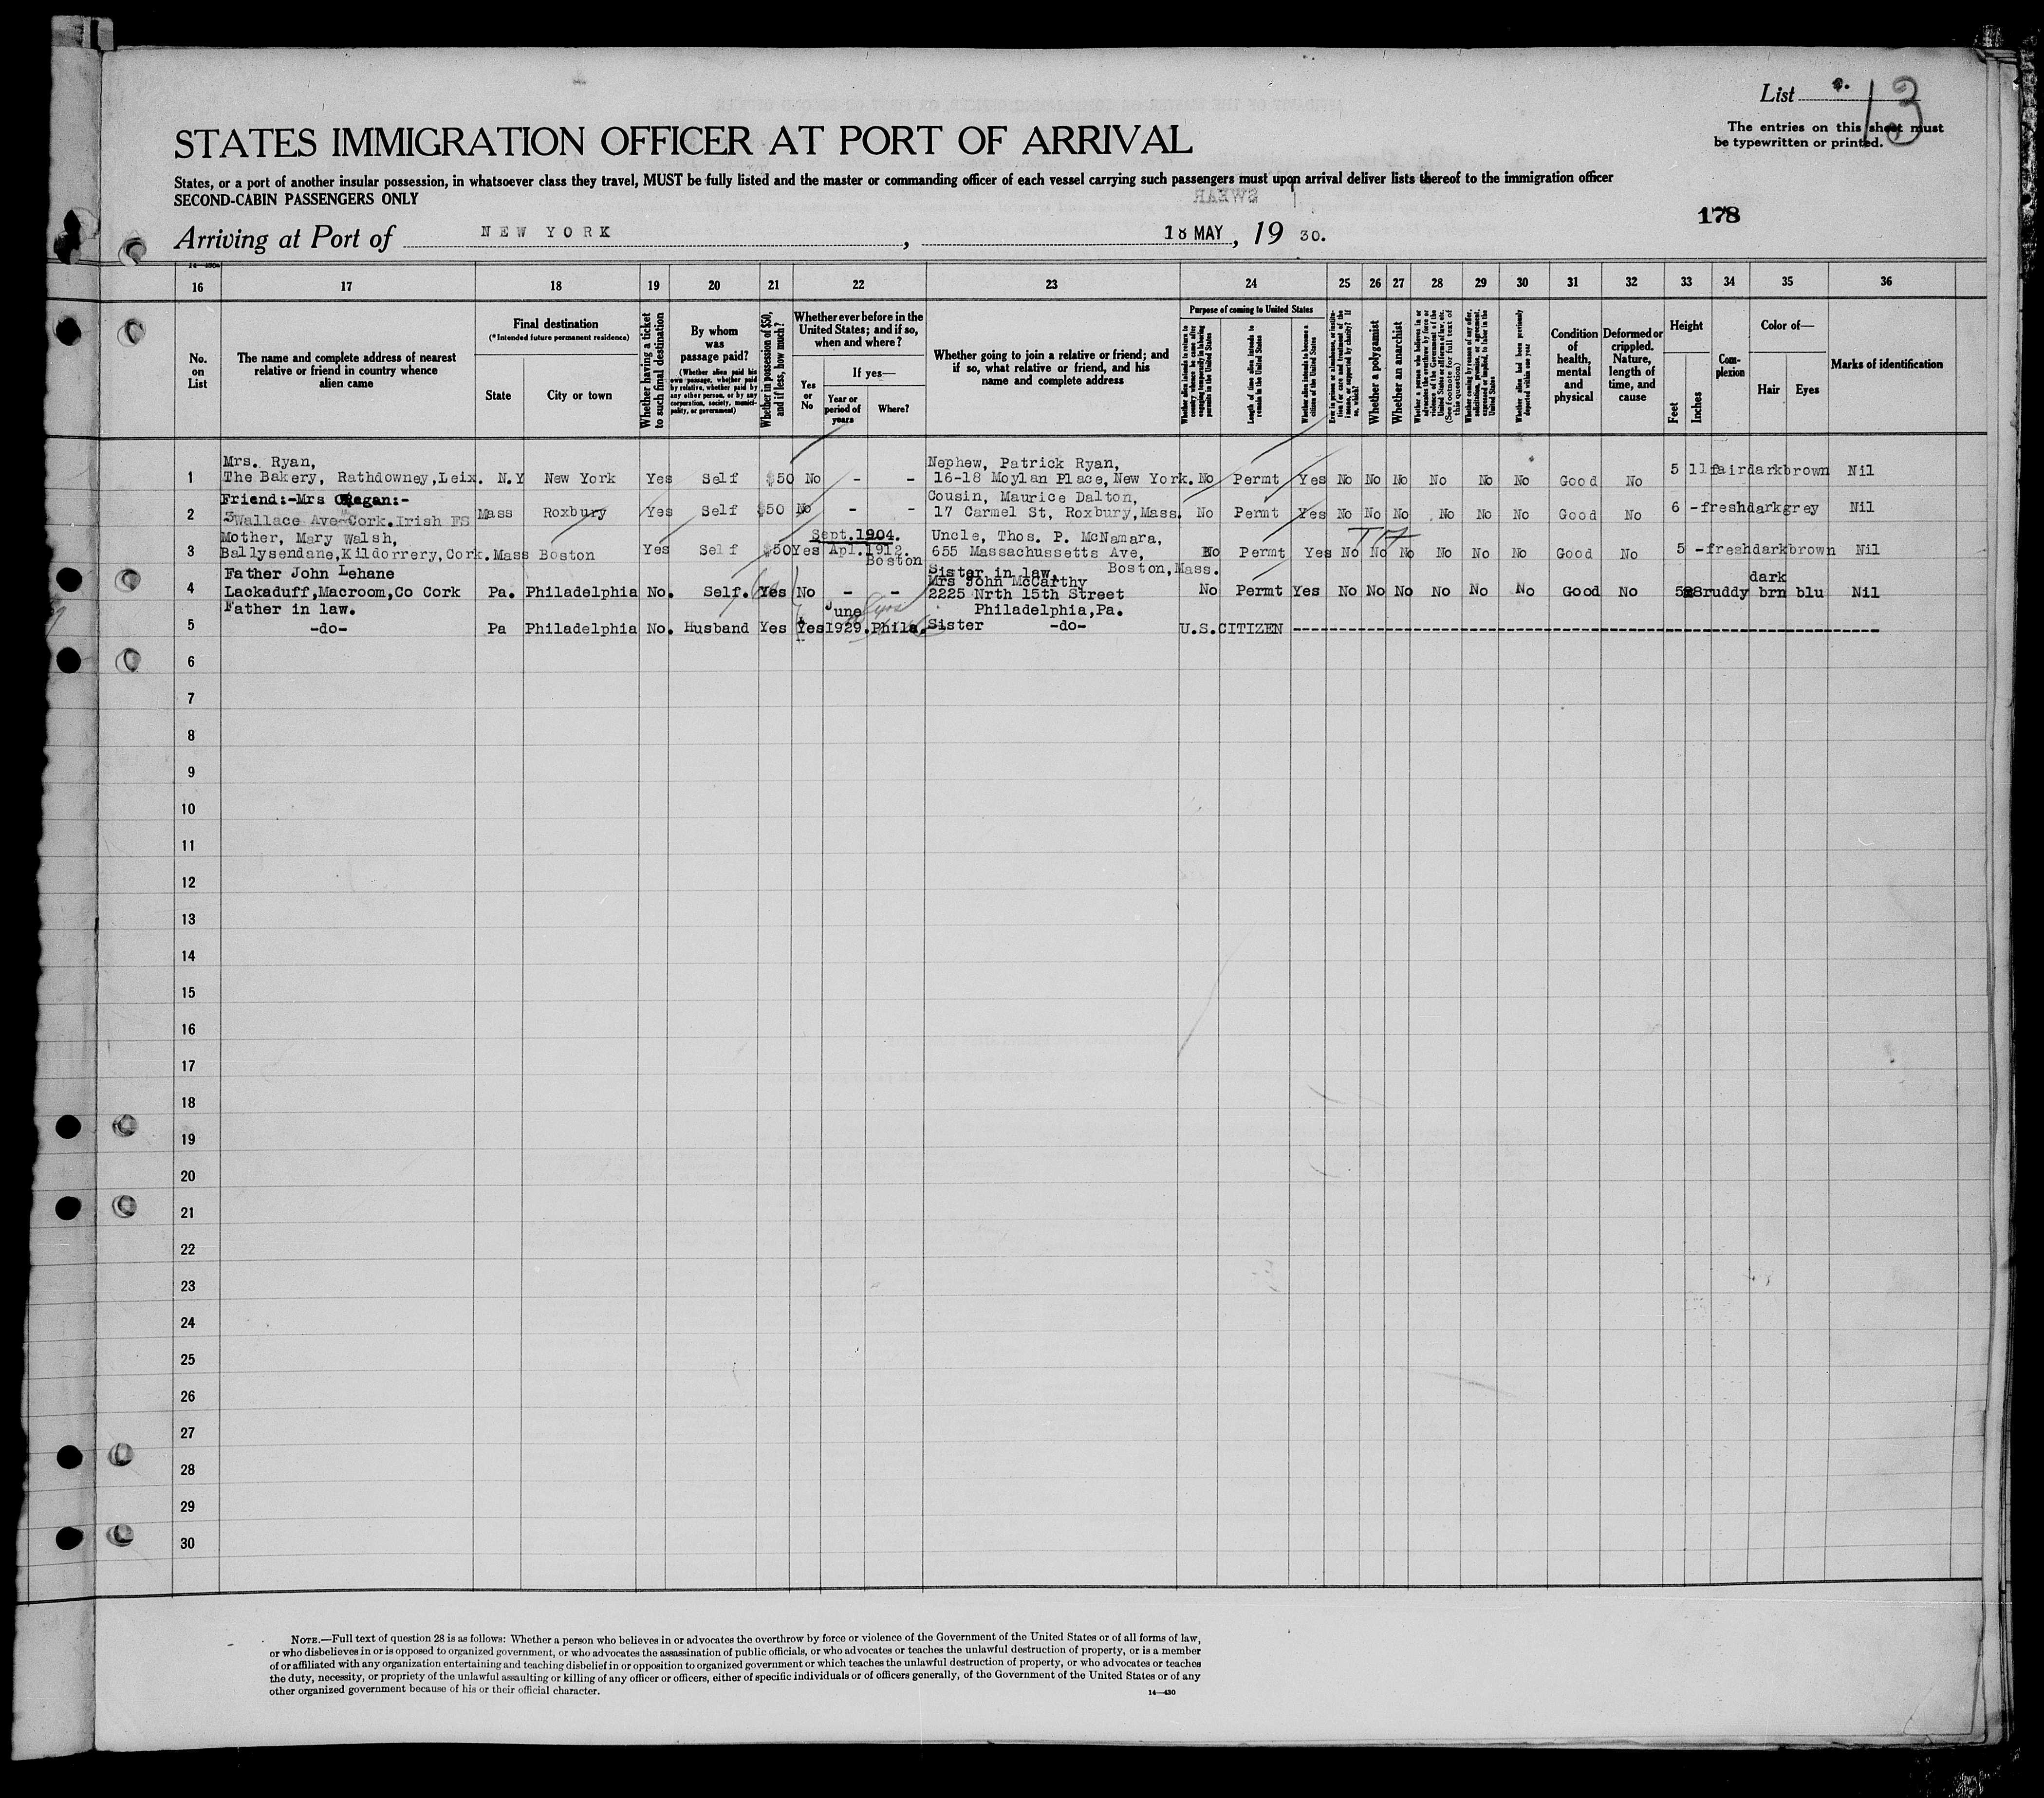 List 13
The entries on this sheet must
be typewritten or printed.
STATES IMMIGRATION OFFICER AT PORT OF ARRIVAL
States, or a port of another insular possession, in whatsoever class they travel, MUST be fully listed and the master or commanding officer of each vessel carrying such passengers must upon arrival deliver lists thereof to the immigration officer
SECOND-CABIN PASSENGERS ONLY
SWEAR
178
Arriving at Port of NEW YORK, 18 MAY, 19 30.
16 17 18 19 20 21 22 23 24 25 26 27 28 29 30 31 32 33 34 35 36
No. on List
The name and complete address of nearest
relative or friend in country whence
alien came
Final destination
(*Intended future permanent residence)
State
City or town
Whether having a ticket
to such final destination
By whom
was
passage paid?
(Whether alien paid his
own passage, whether paid
by relative, whether paid by
any other person, or by any
corporation, society, munici-
pality, or government)
Whether in possession of $50,
and if less, how much?
Whether ever before in the
United States; and if so,
when and where?
Yes
or
No
If yes—
Year or
period of
years
Where?
Whether going to join a relative or friend; and
if so, what relative or friend, and his
name and complete address
Purpose of coming to United States
Whether alien intends to return to
country whence he came after
engaging temporarily in laboring
pursuits in the United States
Length of time alien intends to
remain in the United States
Whether alien intends to become a
citizen of the United States
Ever in prison or almshouse, or institu-
tion for care and treatment of the
insane, or supported by charity? If
so, which?
Whether a polygamist
Whether an anarchist
Whether a person who believes in or
advocates the overthrow by force or
violence of the Government of the
United States or all forms of law, etc.
(See footnote for full text of
this question)
Whether coming by reason of any offer,
solicitation, promise, or agreement,
expressed or implied, to labor in the
United States
Whether alien had been previously
deported within one year
Condition
of
health,
mental
and
physical
Deformed or
crippled.
Nature,
length of
time, and
cause
Height
Feet
Inches
Com-
plexion
Color of—
Hair
Eyes
Marks of identification
Mrs. Ryan,
Nephew, Patrick Ryan,
1 The Bakery, Rathdowney,Leix. N.Y New York Yes Self $50 No - - 16-18 Moylan Place,New York. No Permt Yes No No No No No No Good No 5 11 fair dark brown Nil
Friend:-Mrs O'Regan:-
Cousin, Maurice Dalton,
2 3 Wallace Ave Cork.Irish FS Mass Roxbury Yes Self $50 No - - 17 Carmel St, Roxbury,Mass. No Permt Yes No No No No No No Good No 6 - fresh dark grey Nil
Mother, Mary Walsh,
Sept.1904.
Uncle, Thos. P. McNamara,
3 Ballysendane,Kildorrery,Cork. Mass Boston Yes Self $50 Yes Apl.1912. Boston 655 Massachussetts Ave, Boston,Mass. No Permt Yes No No No No No No Good No 5 - fresh dark brown Nil
Father John Lehane
Sister in law.
Mrs John McCarthy
dark
4 Lackaduff,Macroom,Co Cork Pa. Philadelphia No. Self. Yes No - - 2225 Nrth 15th Street No Permt Yes No No No No No No Good No 5 8 ruddy brn blu Nil
Father in law.
June
Philadelphia,Pa.
5 -do- Pa Philadelphia No. Husband Yes Yes 1929. Phila. Sister -do- U.S.CITIZEN
6
7
8
9
10
11
12
13
14
15
16
17
18
19
20
21
22
23
24
25
26
27
28
29
30
NOTE.—Full text of question 28 is as follows: Whether a person who believes in or advocates the overthrow by force or violence of the Government of the United States or of all forms of law,
or who disbelieves in or is opposed to organized government, or who advocates the assassination of public officials, or who advocates or teaches the unlawful destruction of property, or is a member
of or affiliated with any organization entertaining and teaching disbelief in or opposition to organized government or which teaches the unlawful destruction of property, or who advocates or teaches
the duty, necessity, or propriety of the unlawful assaulting or killing of any officer or officers, either of specific individuals or of officers generally, of the Government of the United States or of any
other organized government because of his or their official character.
14—430